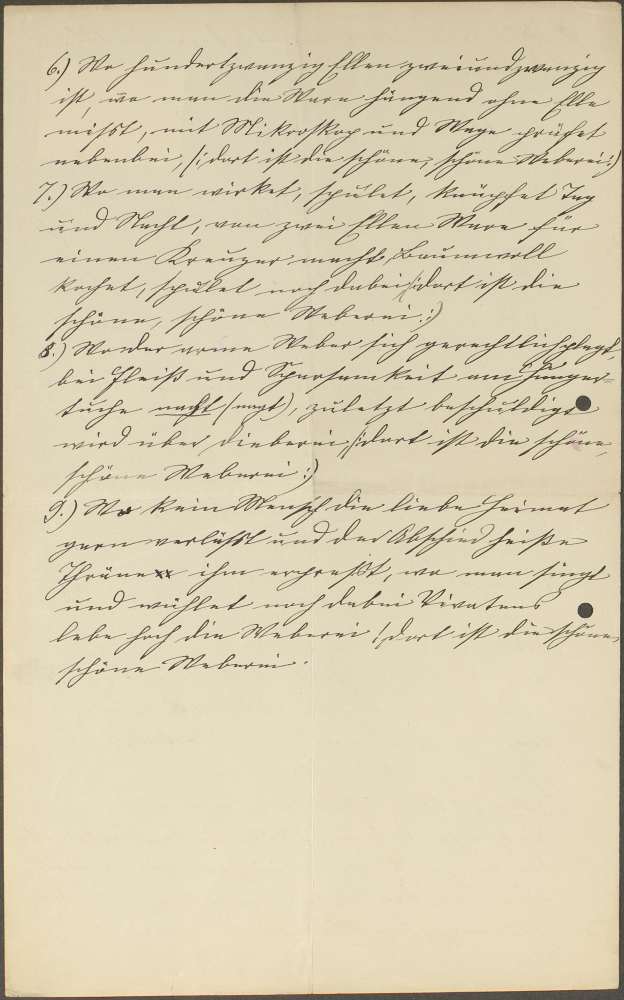 6.) Wo hundertzwanzig Ellen zweiundzwanzig
ist, wo man die Ware hängend ohne Elle
misst, mit Mikroskop und Wage prüfet
nebenbei, /: dort ist die schöne, schöne Weberei :/
7.) Wo man wirket, spulet, knüpfet Tag
und Nacht, von zwei Ellen Ware für
einen Kreuzer macht, Baumwoll
kochet, spulet noch dabei /: dort ist die
schöne, schöne Weberei :/
8.) Wo der arme Weber sich gerechtlich plagt,
bei Fleiß und Sparsamkeit am Hunger-
tuche nagt (nagt), zuletzt beschuldigt
wird über Dieberei /: dort ist die schöne,
schöne Weberei :/
9.) Wo kein Mensch die liebe Heimat
gern verlässt und der Abschied heiße
Thräne ihm erpresst, wo man singt
und wühlet noch dabei
lebe hoch die Weberei! dort ist die schöne,
schöne Weberei.